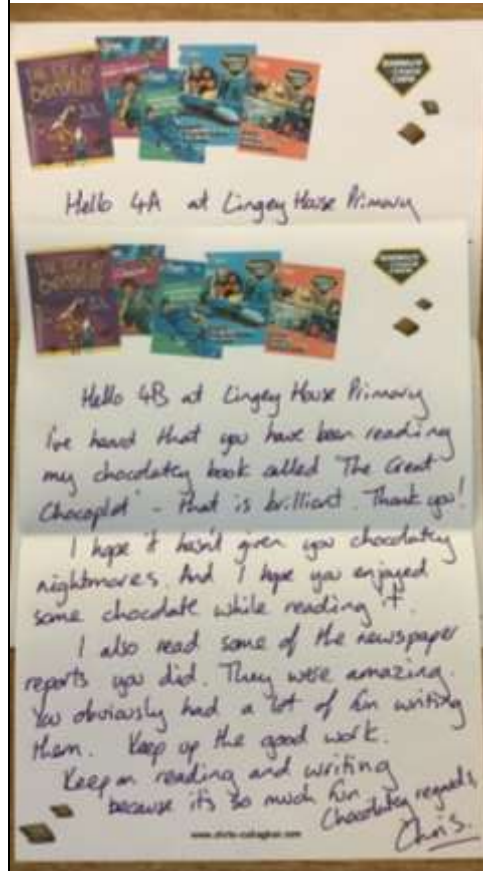 THE GREAT CHOCOPLOT
Hello 4A at Lingey House Primary
THE GREAT CHOCOPLOT
Hello 4B at Lingey House Primary
I've heard that you have been reading
my chocolatey book called 'The Great
Chocoplot' - that is brilliant. Thank you!
I hope it hasn't given you chocolatey
nightmares. And I hope you enjoyed
some chocolate while reading it.
I also read some of the newspaper
reports you did. They were amazing.
You obviously had a lot of fun writing
them. Keep up the good work.
Keep on reading and writing
because it's so much fun
Chocolatey regards,
Chris.
www.chris-callaghan.com